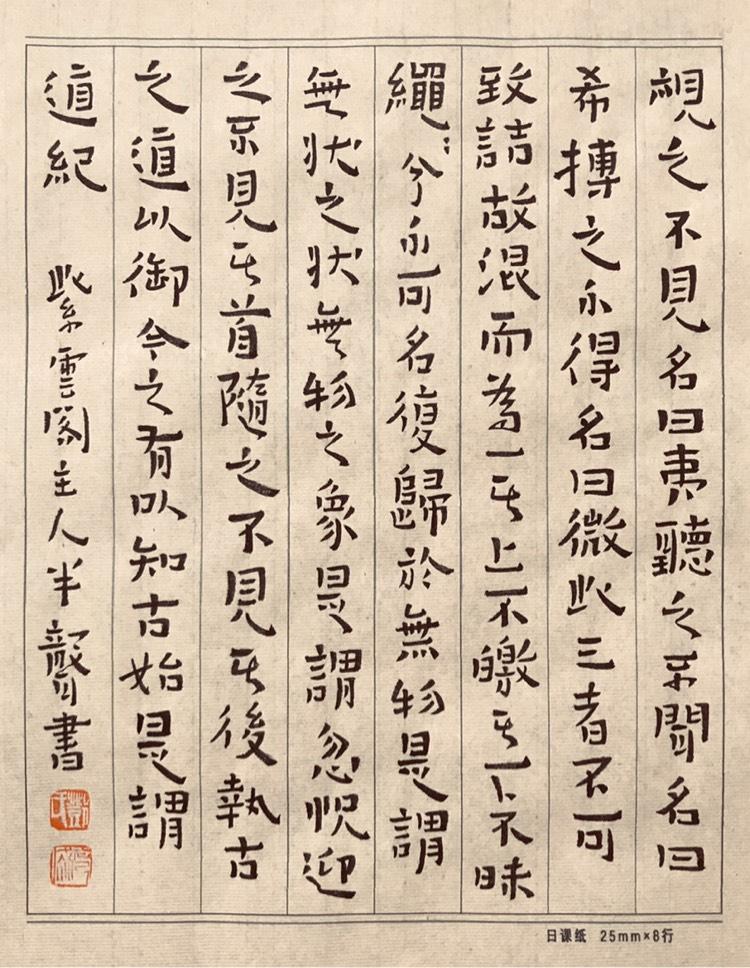 視之不見名曰夷聽之不聞名曰
希搏之不得名曰微此三者不可
致詰故混而為一其上不皦其下不昧
繩〻兮不可名復歸於無物是謂
無状之状無物之象是謂忽怳迎
之不見其首隨之不見其後執古
之道以御今之有以知古始是謂
道紀 紫雲閣主人半聾書
日课纸 25mm×8行